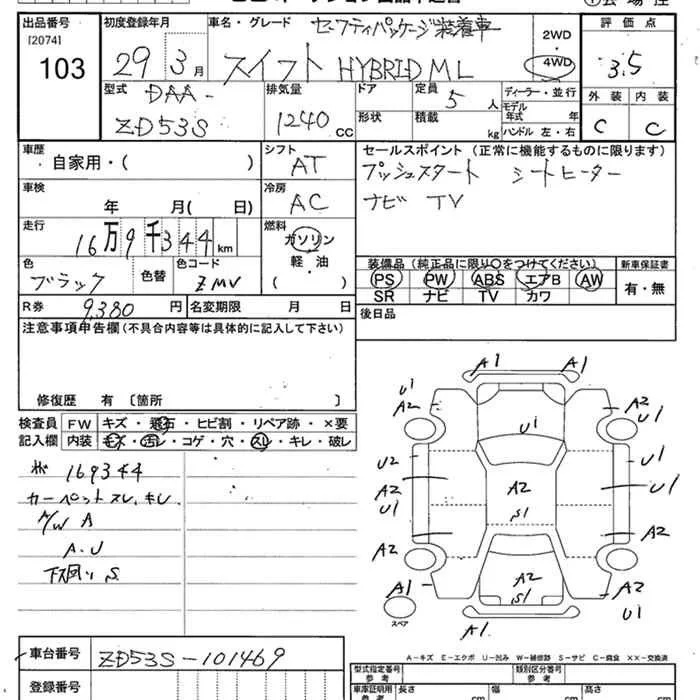 出品番号 初度登録年月 車名・グレード セーフティパッケージ装着車 2WD 評価点
[2074]
103 29 3月 スイフト HYBRID ML 4WD 3.5
型式 DAA- 排気量 ドア 定員 5人 ディーラー・並行 外装 内装
ZD53S 1240 cc 形状 積載 kg モデル年式 年 C C
ハンドル 左・右
車歴 自家用・( ) シフト AT セールスポイント (正常に機能するものに限ります)
プッシュスタート シートヒーター
車検 年 月( 日) 冷房 AC ナビ TV
走行 16万9千344km 燃料 ガソリン
軽・油
( )
色 ブラック 色替 色コード ZMV
装備品(純正品に限り○をつけてください) 新車保証書
PS PW ABS エアB AW 有・無
SR ナビ TV カワ
R券 9,380円 名変期限 月 日 後日品
注意事項申告欄(不具合内容等は具体的に記入して下さい)
修復歴 有〔箇所 〕
検査員記入欄 FW キズ・飛石・ヒビ割・リペア跡・×要
内装 キズ・汚レ・コゲ・穴・スレ・キレ・破レ
169344
カーペットスレ、キレ
A
A.U
下回り S
A1 A1
U1 A2
A2 U1
U1
U2 U1
A2 A2 U1
U1 S1
A2 A2
A1 A2 A2
S1 U1
スペア A1
A-キズ E-エクボ U-凹み W-補修跡 S-サビ C-腐食 XX-交換済
車台番号 ZD53S-101469
登録番号
型式指定番号 参考 類別区分番号 参考
車庫証明用 参考 長さ cm 幅 cm 高さ cm